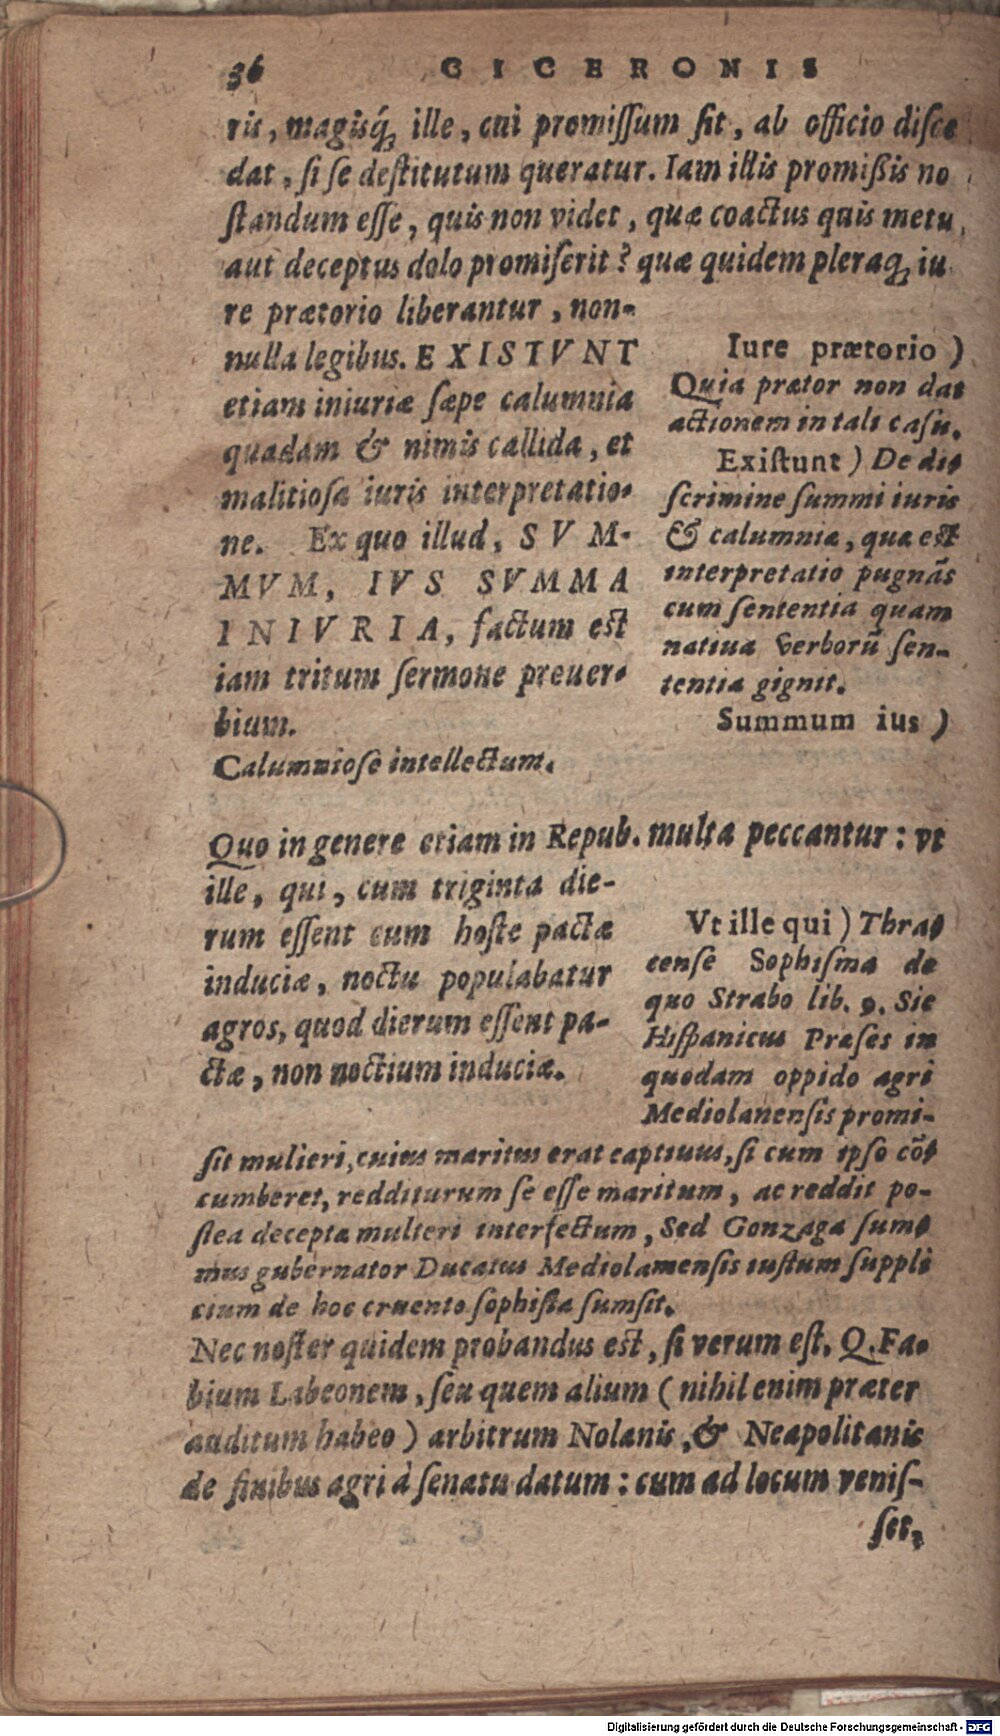 36 CICERONIS
ris, magisq́; ille, cui promissum sit, ab officio disce
dat, si se destitutum queratur. Iam illis promißis no
standum esse, quis non videt, quæ coactus quis metu,
aut deceptus dolo promiserit? quæ quidem pleraq; iu
re prætorio liberantur, non-
nulla legibus. EXISTVNT
etiam iniuriæ sæpe calumnia
quadam & nimis callida, et
malitiosa iuris interpretatio-
ne. Ex quo illud, SVM-
MVM, IVS SVMMA
INIVRIA, factum est
iam tritum sermone preuer-
bium.
Iure prætorio)
Quia prætor non dat
actionem in tali casu.
Existunt) De di-
scrimine summi iuris
& calumniæ, quæ est
interpretatio pugnãs
cum sententia quam
natiua verborũ sen-
tentia gignit.
Summum ius)
Calumniose intellectum.
Quo in genere etiam in Repub. multa peccantur: vt
ille, qui, cum triginta die-
rum essent cum hoste pactæ
induciæ, noctu populabatur
agros, quod dierum essent pa-
ctæ, non noctium induciæ.
Vt ille qui) Thra-
cense Sophisma de
quo Strabo lib. 9. Sic
Hispanicus Præses in
quodam oppido agri
Mediolanensis promi-
sit mulieri, cuius maritus erat captiuus, si cum ipso cõ-
cumberet, redditurum se esse maritum, ac reddit po-
stea decepta mulieri interfectum, Sed Gonzaga sum-
mus gubernator Ducatus Mediolamensis iustum suppli
cium de hoc cruento sophista sumsit.
Nec noster quidem probandus est, si verum est, Q. Fa-
bium Labeonem, seu quem alium (nihil enim præter
auditum habeo) arbitrum Nolanis, & Neapolitanis
de finibus agri à senatu datum: cum ad locum venis-
set,
Digitalisierung gefördert durch die Deutsche Forschungsgemeinschaft - DFG